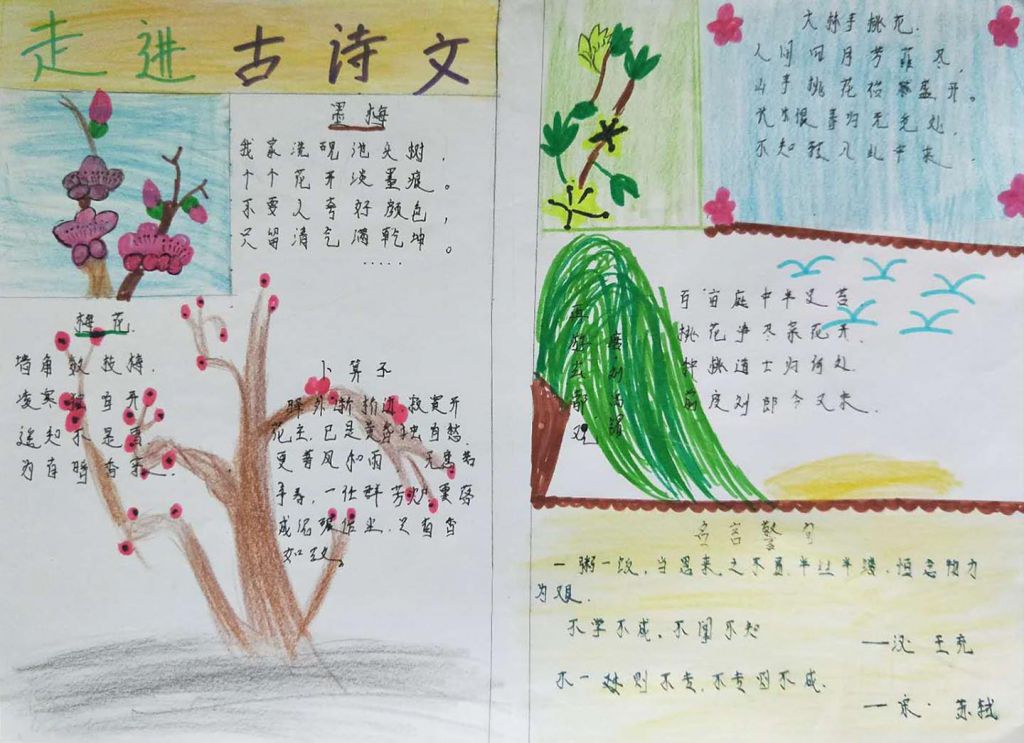 走进古诗文
墨梅
我家洗砚池头树，
个个花开淡墨痕。
不要人夸好颜色，
只留清气满乾坤。
.....
梅花
墙角数枝梅，
凌寒独自开
遥知不是雪
为有暗香来。
卜算子
驿外断桥边，寂寞开
花主，已是黄昏独自愁，
更著风和雨。无意苦
争春，一任群芳妒。零落
成泥碾作尘，只有香
如故。
大林寺桃花
人间四月芳菲尽，
山寺桃花盛开。
长恨春归无觅处，
不知转入此中来
再游玄都观
百亩庭中半是苔
桃花净尽菜花开
种桃道士归何处
前度刘郎今又来
名言警句
一粥一饭，当思来之不易，半丝半缕，恒念物力
为艰。
不学不成，不闻不知
——汉 王充
不一则不专，不专则不成.
——宋·苏轼